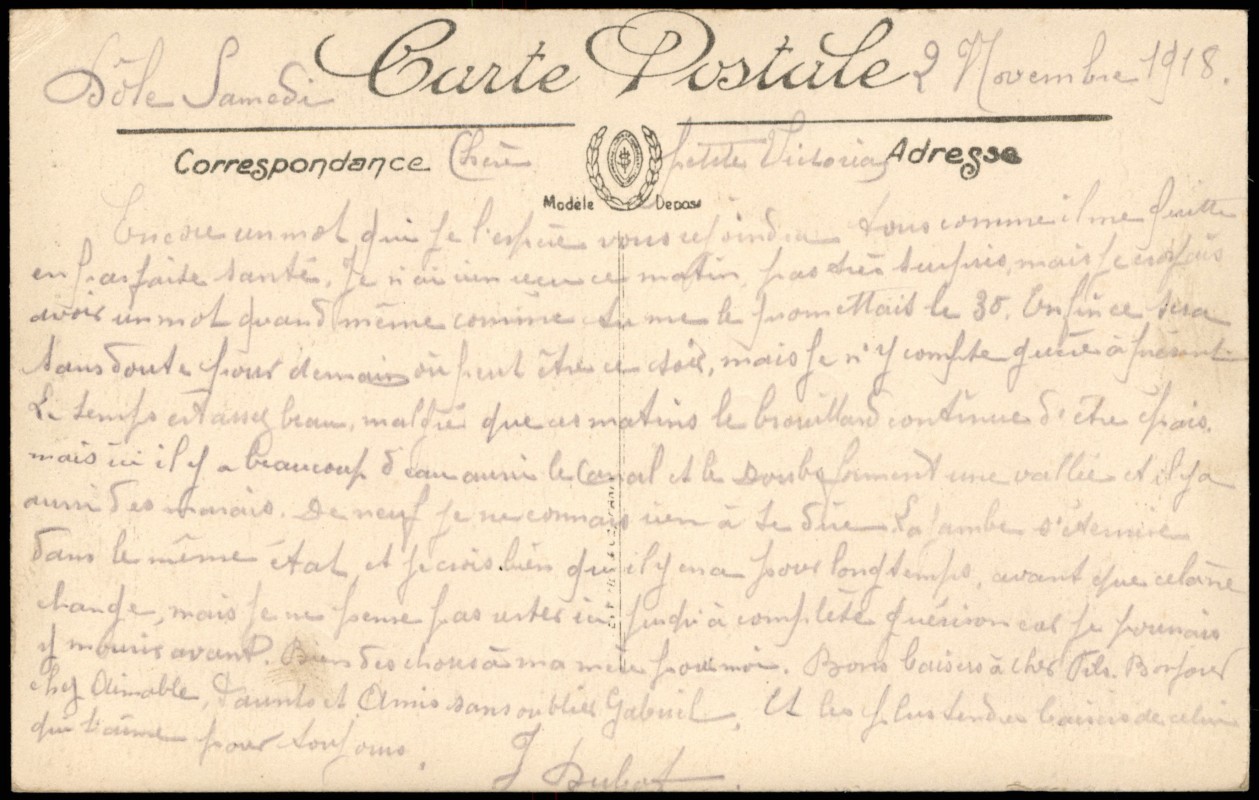 Carte Postale
Dôle Samedi 2 Novembre 1918.
Correspondance Adresse
Chère petite Victoria
Modèle Déposé
Encore un mot qui je l'espère vous rejoindra tous comme il me quitte
en parfaite santé. Je n'ai rien recu ce matin, pas très surpris, mais je croyais
avoir un mot quand même comme tu me le promettais le 30. Enfin ce sera
sans doute pour demain ou peut être ce soir, mais je n'y compte guère à présent
Le temps est assez beau, malgré que ces matins le brouillard continue d'être épais.
mais ici il y a beaucoup d'eau aussi le Canal et le Doubs forment une vallée et il y a
aussi des marais. De neuf je ne connais rien à te dire. La jambe s'éternise
dans le même état, et je crois bien qu'il y en a pour longtemps, avant que cela ne
change, mais je ne pense pas rester ici jusqu'à complète guérison car je pourrais
y mourir avant. Bien des choses à ma mère pour moi. Bons baisers à cher Fils. Bonjour
chez Aimable, Parents et Amis sans oublier Gabriel. Et les plus tendres baisers de celui
qui t'aime pour toujours.
J Dubot